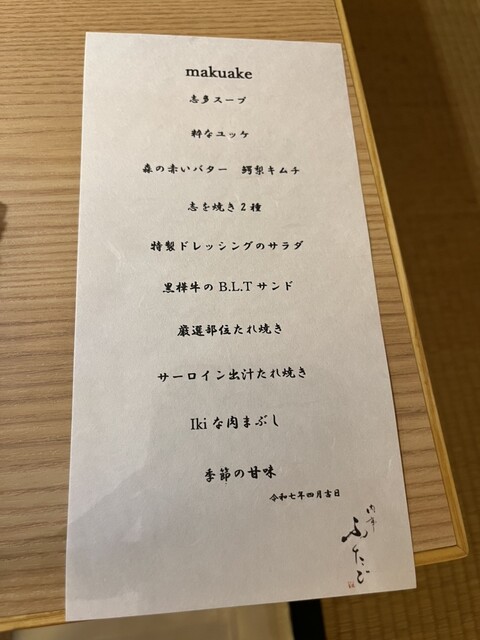 makuake
志多スープ
粋なユッケ
森の赤いバター 鰐梨キムチ
志を焼き2種
特製ドレッシングのサラダ
黒樺牛のB.L.Tサンド
厳選部位たれ焼き
サーロイン出汁たれ焼き
Ikiな肉まぶし
季節の甘味
令和七年四月吉日
ふたご